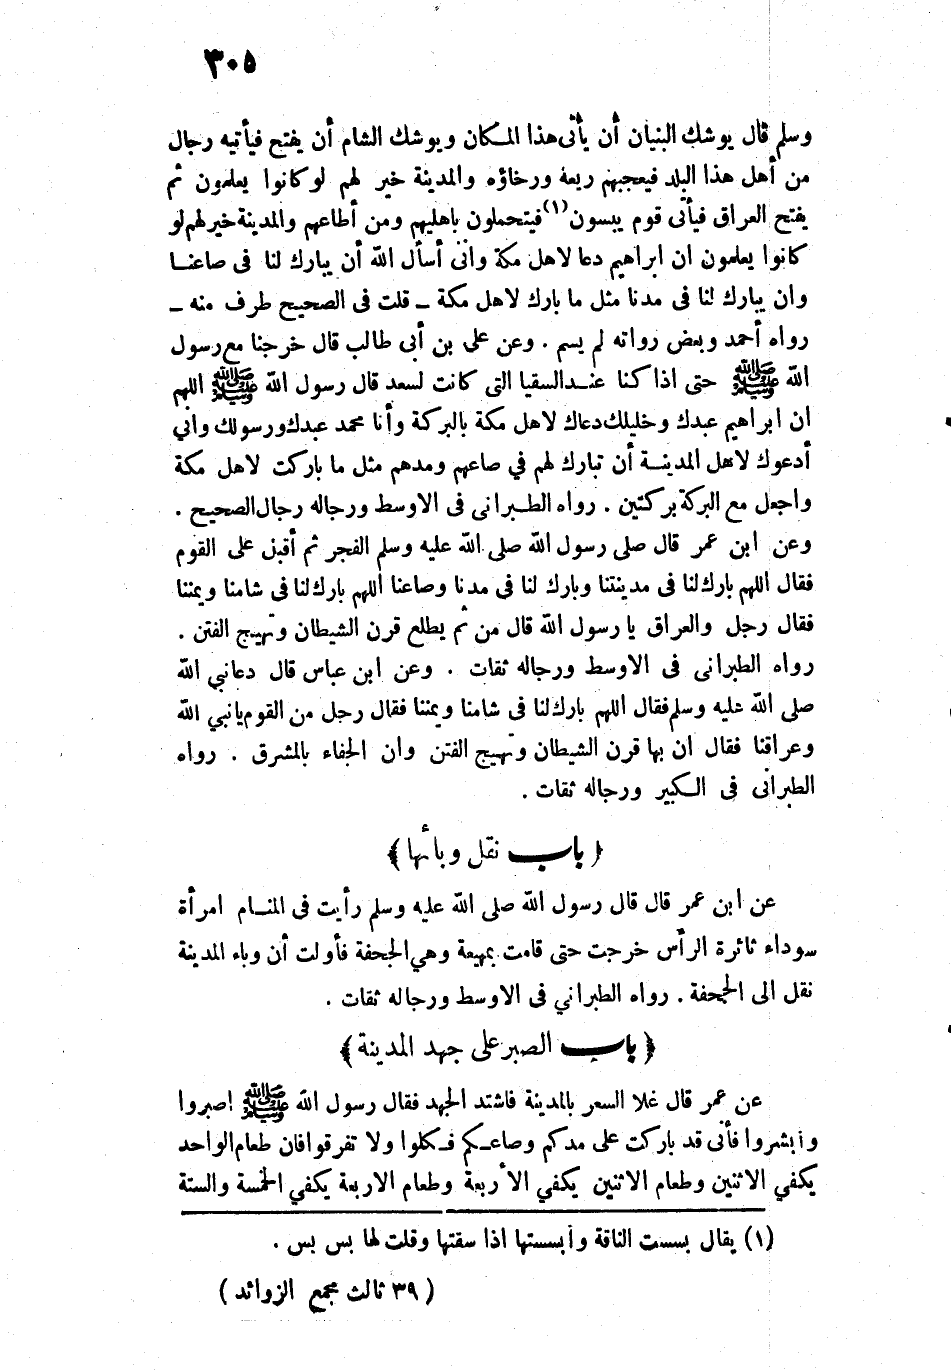 ٣٠٥
وسلم قال يوشك البنيان أن يأتى هذا المكان ويوشك الشام أن يفتح فيأتيه رجال
من أهل هذا البلد فيعجبهم ريعة ورخاؤه والمدينة خير لهم لو كانوا يعلمون ثم
يفتح العراق فيأتى قوم يبسون (١) فيتحملون باهليهم ومن أطاعهم والمدينة خير لهم لو
كانوا يعلمون ان ابراهيم دعا لاهل مكة وانى أسأل الله أن يبارك لنا فى صاعنا
وان يبارك لنا فى مدنا مثل ما بارك لاهل مكة ــ قلت فى الصحيح طرف منه ــ
رواه أحمد وبعض رواته لم يسم . وعن على بن أبى طالب قال خرجنا مع رسول
الله ﷺ حتى اذا كنا عند السقيا التى كانت لسعد قال رسول الله ﷺ اللهم
ان ابراهيم عبدك وخليلك دعاك لاهل مكة بالبركة وأنا محمد عبدك ورسولك وانى
أدعوك لاهل المدينة أن تبارك لهم في صاعهم ومدهم مثل ما باركت لاهل مكة
واجعل مع البركة بركتين . رواه الطبرانى فى الاوسط ورجاله رجال الصحيح .
وعن ابن عمر قال صلى رسول الله صلى الله عليه وسلم الفجر ثم أقبل على القوم
فقال اللهم بارك لنا فى مدينتنا وبارك لنا فى مدنا وصاعنا اللهم بارك لنا فى شامنا ويمننا
فقال رجل والعراق يا رسول الله قال من ثم يطلع قرن الشيطان وتهيج الفتن .
رواه الطبرانى فى الاوسط ورجاله ثقات . وعن ابن عباس قال دعا نبي الله
صلى الله عليه وسلم فقال اللهم بارك لنا فى شامنا ويمننا فقال رجل من القوم يا نبي الله
وعراقنا فقال ان بها قرن الشيطان وتهيج الفتن وان الجفاء بالمشرق . رواه
الطبرانى فى الكبير ورجاله ثقات .
﴿ باب نقل وبائها ﴾
عن ابن عمر قال قال رسول الله صلى الله عليه وسلم رأيت فى المنام امرأة
سوداء ثائرة الرأس خرجت حتى قامت بمهيعة وهي الجحفة فأولت أن وباء المدينة
نقل الى الجحفة . رواه الطبراني فى الاوسط ورجاله ثقات .
﴿ باب الصبر على جهد المدينة ﴾
عن عمر قال غلا السعر بالمدينة فاشتد الجهد فقال رسول الله ﷺ اصبروا
وأبشروا فأنى قد باركت على مدكم وصاعكم فكلوا ولا تفرقوا فان طعام الواحد
يكفي الاثنين وطعام الاثنين يكفي الأربعة وطعام الاربعة يكفي الخمسة والستة
(١) يقال بسست الناقة وأبسستها اذا سقتها وقلت لها بس بس .
( ٣٩ ثالث مجمع الزوائد )